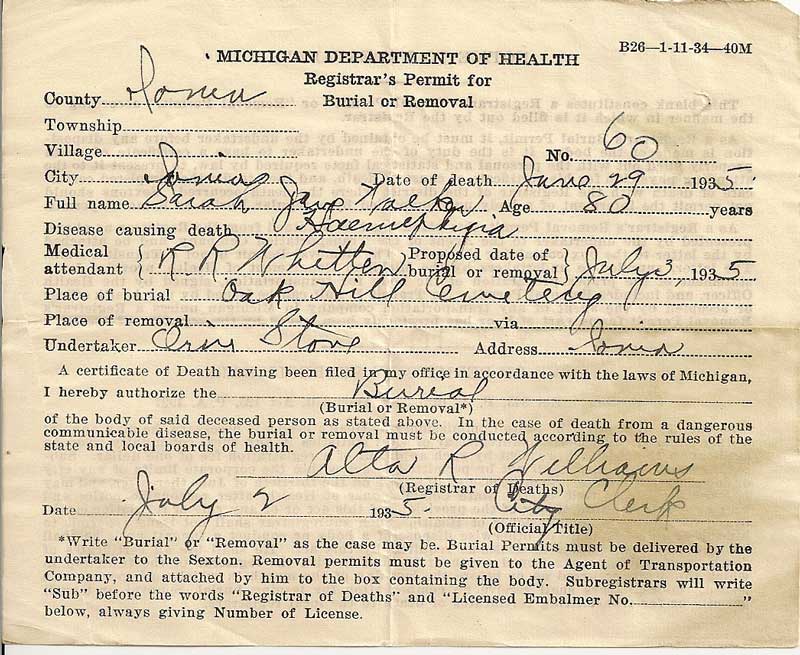 B26—1-11-34—40M
MICHIGAN DEPARTMENT OF HEALTH
Registrar's Permit for
Burial or Removal
County Ionia
Township
Village
No. 60
City Ionia Date of death June 29 1935
Full name Sarah Jane Age 80 years
Disease causing death
Medical attendant R R Whitten Proposed date of burial or removal July 3, 1935
Place of burial Oak Hill Cemetery
Place of removal via
Undertaker Orin Stone Address Ionia
A certificate of Death having been filed in my office in accordance with the laws of Michigan,
I hereby authorize the Burial
(Burial or Removal*)
of the body of said deceased person as stated above. In the case of death from a dangerous
communicable disease, the burial or removal must be conducted according to the rules of the
state and local boards of health.
Alta R Williams
(Registrar of Deaths)
Date July 2 1935. City Clerk
(Official Title)
*Write "Burial" or "Removal" as the case may be. Burial Permits must be delivered by the
undertaker to the Sexton. Removal permits must be given to the Agent of Transportation
Company, and attached by him to the box containing the body. Subregistrars will write
"Sub" before the words "Registrar of Deaths" and "Licensed Embalmer No. "
below, always giving Number of License.